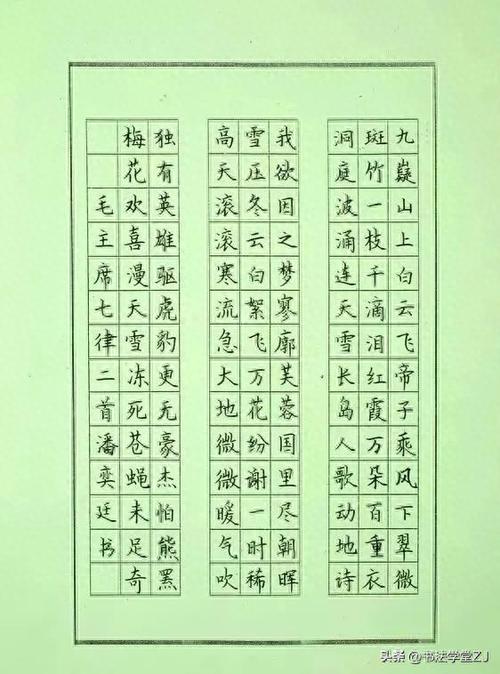 九嶷山上白云飞帝子乘风下翠微
斑竹一枝千滴泪红霞万朵百重衣
洞庭波涌连天雪长岛人歌动地诗
我欲因之梦寥廓芙蓉国里尽朝晖
雪压冬云白絮飞万花纷谢一时稀
高天滚滚寒流急大地微微暖气吹
独有英雄驱虎豹更无豪杰怕熊罴
梅花欢喜漫天雪冻死苍蝇未足奇
毛主席七律二首潘奕廷书
头条 @书法学堂ZJ